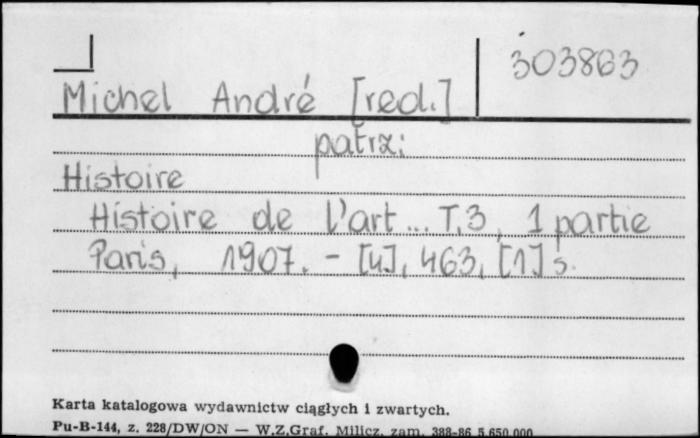 303863
Michel André [red.]
patrz:
Histoire
Histoire de l'art... T.3, 1 partie
Paris, 1907. - [4], 463, [1] s.
Karta katalogowa wydawnictw ciągłych i zwartych.
Pu-B-144, z. 228/DW/ON — W.Z.Graf. Milicz, zam. 388-86 5.650.000